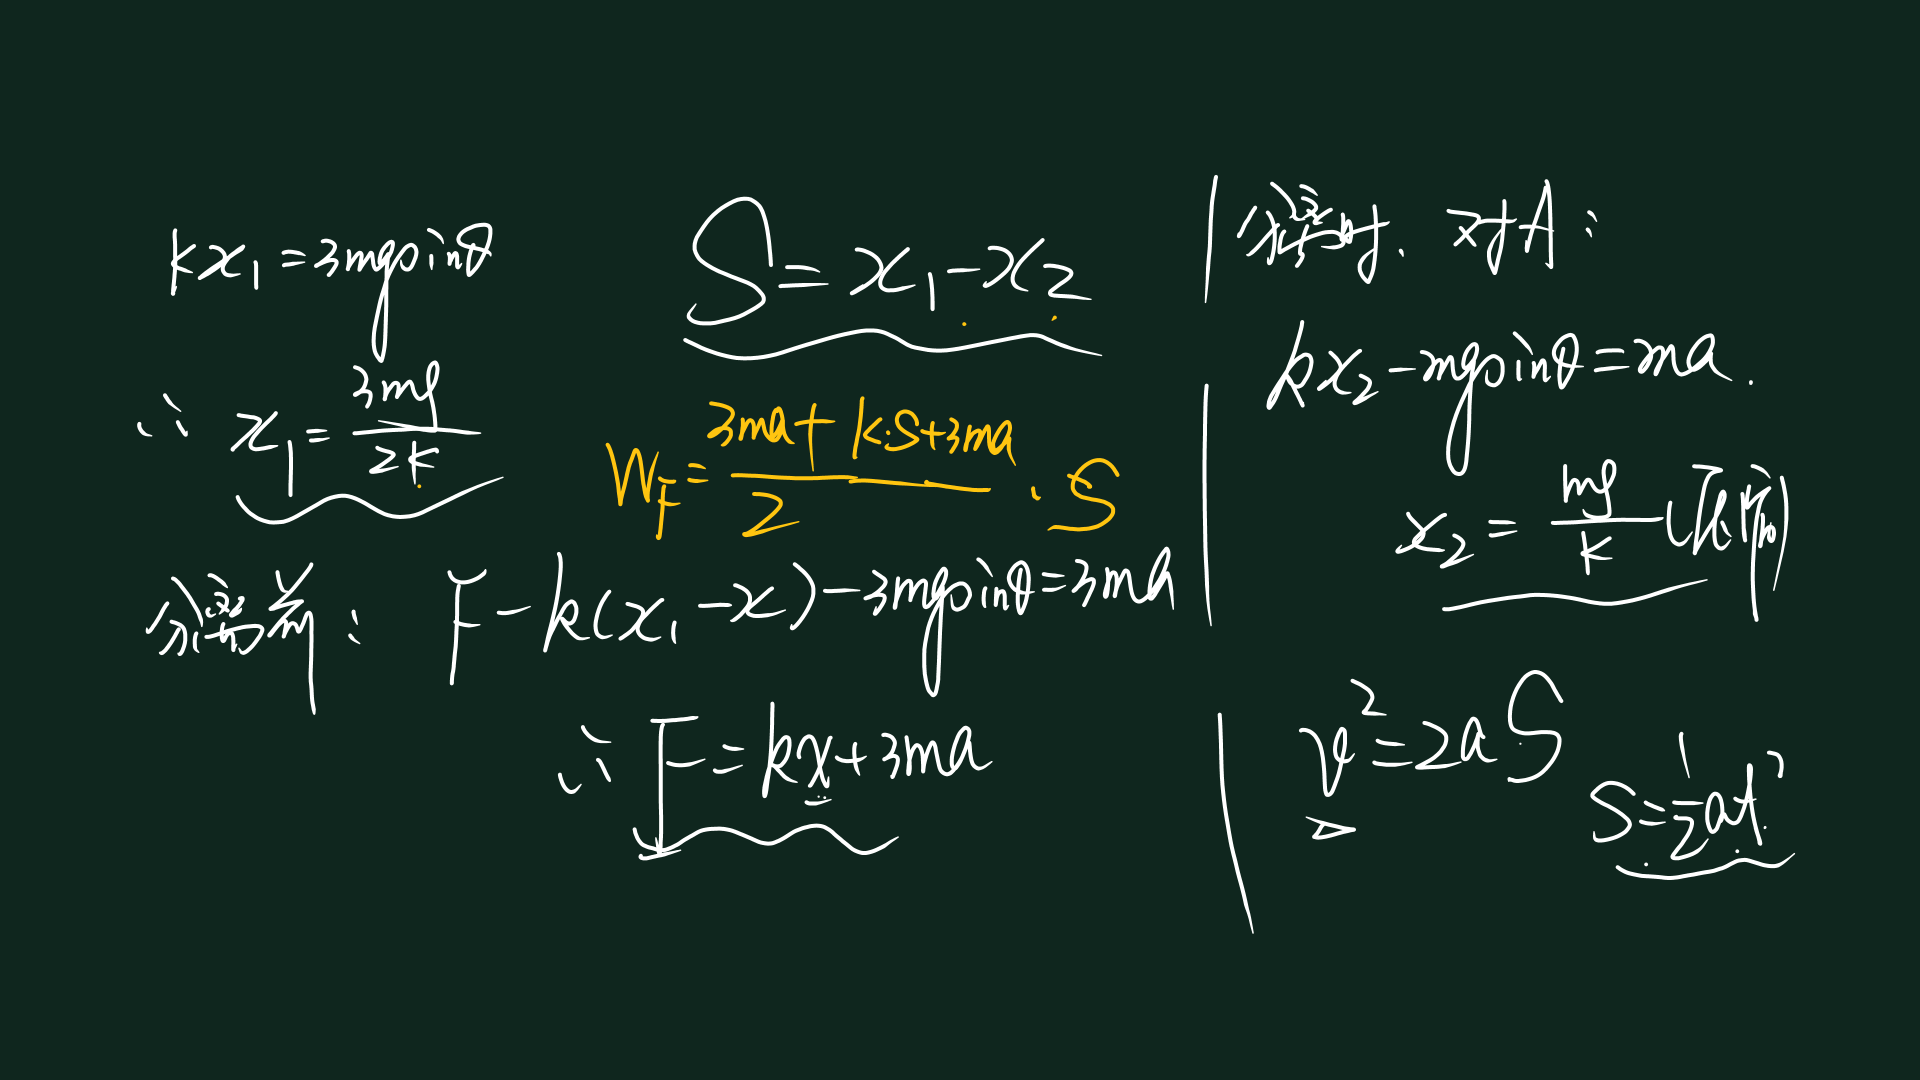 kx₁=3mgsinθ
∴ x₁=3mg/2k
S=x₁-x₂
W_F=(3ma+k·S+3ma)/2·S
分离前: F-k(x₁-x)-3mgsinθ=3ma
∴ F=kx+3ma
分离时. 对A:
kx₂-mgsinθ=ma.
x₂=mg/k(压缩)
v²=2aS
S=1/2at²